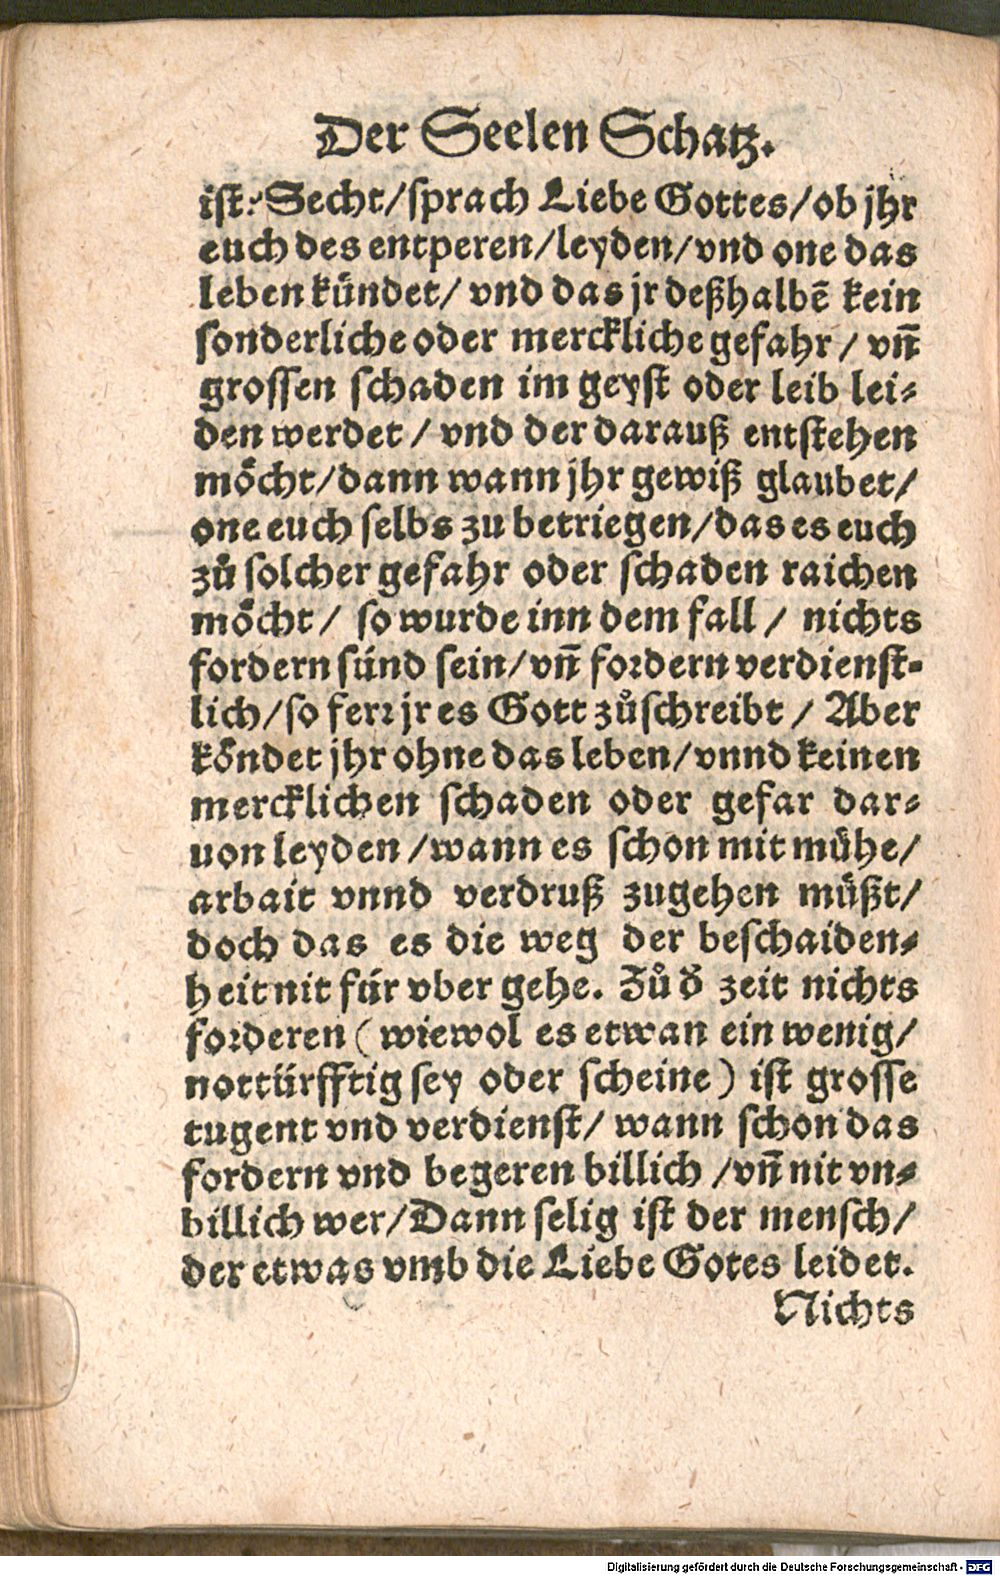 Der Seelen Schatz.
ist? Secht/sprach Liebe Gottes/ob jhr
euch des entperen/leyden/vnd one das
leben kündet/ vnd das jr deßhalbē kein
sonderliche oder merckliche gefahr / vñ
grossen schaden im geyst oder leib lei⸗
den werdet / vnd der darauß entstehen
möcht/dann wann jhr gewiß glaubet/
one euch selbs zu betriegen/das es euch
zů solcher gefahr oder schaden raichen
möcht/ so wurde inn dem fall / nichts
fordern sünd sein/vñ fordern verdienst⸗
lich/so ferr jr es Gott zůschreibt / Aber
köndet jhr ohne das leben/vnnd keinen
mercklichen schaden oder gefar dar⸗
uon leyden /wann es schon mit mühe/
arbait vnnd verdruß zugehen müßt/
doch das es die weg der beschaiden⸗
heit nit für vber gehe. Zů d̕ zeit nichts
forderen ( wiewol es etwan ein wenig/
nottürfftig sey oder scheine ) ist grosse
tugent vnd verdienst/ wann schon das
fordern vnd begeren billich /vñ nit vn⸗
billich wer/Dann selig ist der mensch/
der etwas vmb die Liebe Gotes leidet.
Nichts
Digitalisierung gefördert durch die Deutsche Forschungsgemeinschaft - DFG